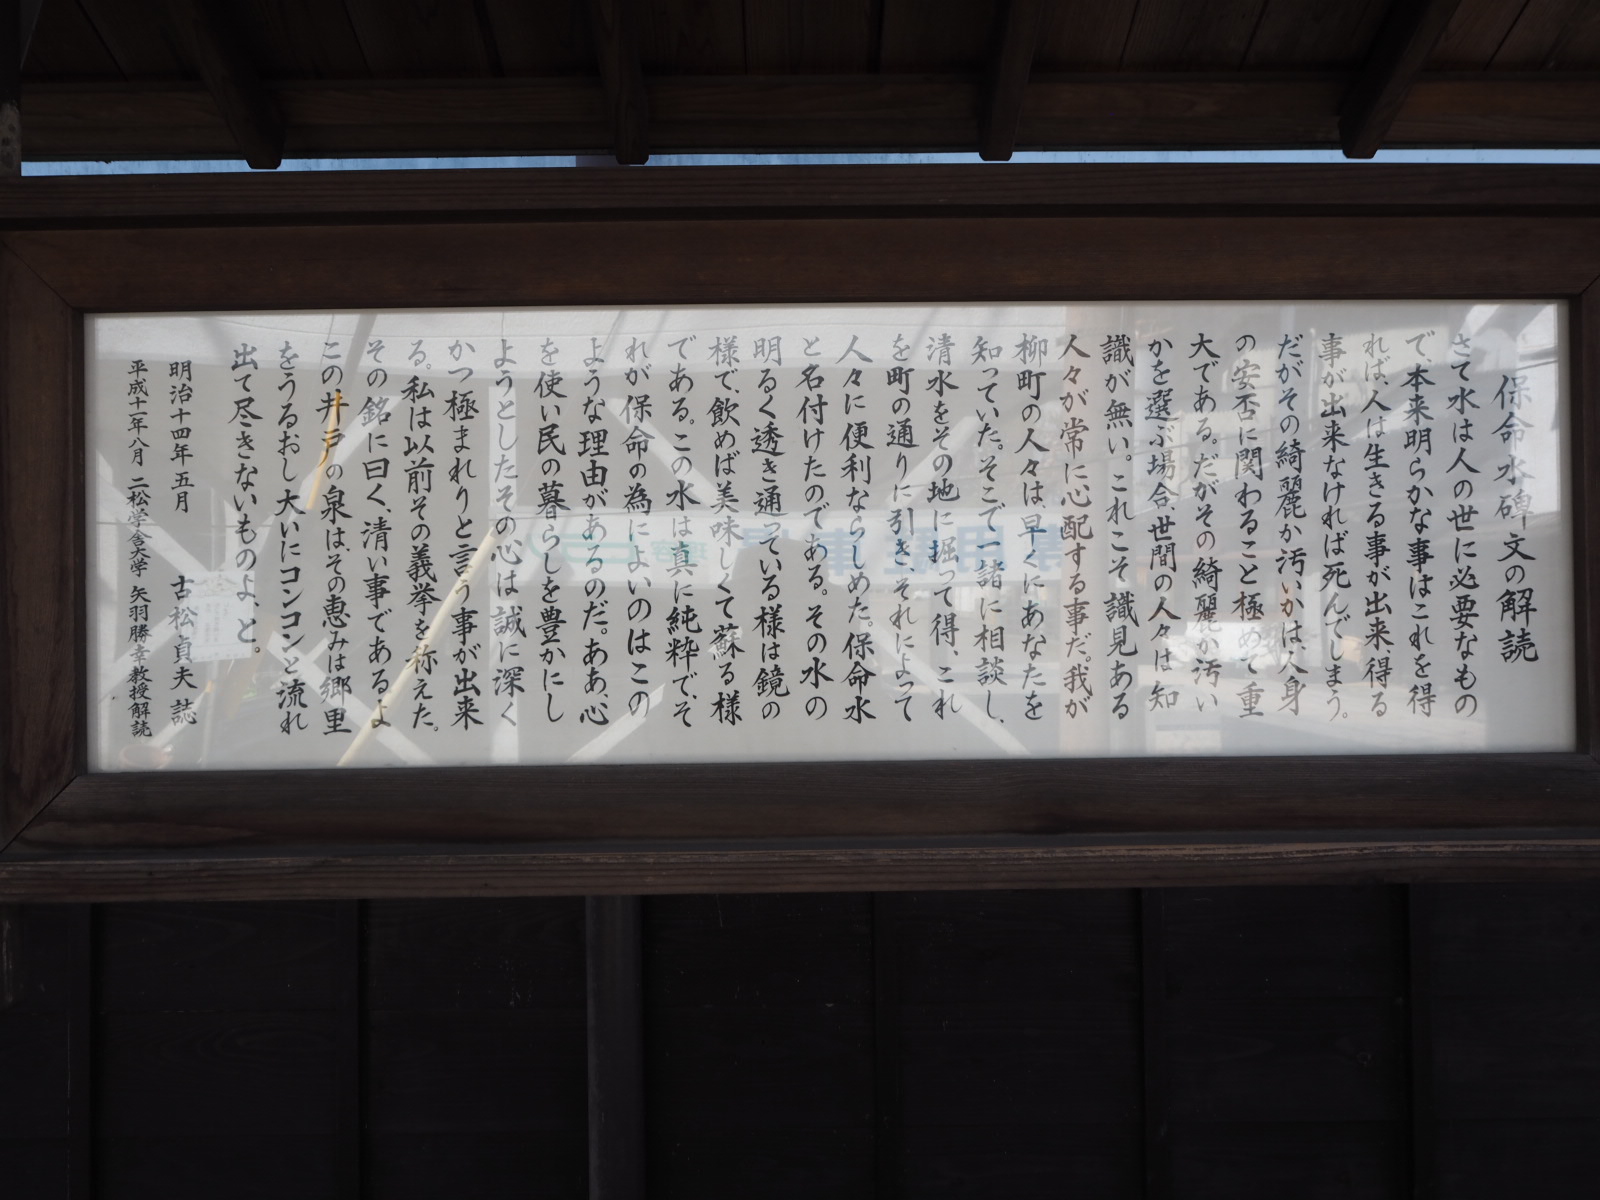 保命水碑文の解読
さて水は人の世に必要なもの
で、本来明らかな事はこれを得
れば、人は生きる事が出来、得る
事が出来なければ死んでしまう。
だがその綺麗か汚いかは、人身
の安否に関わること極めて重
大である。だがその綺麗か汚い
かを選ぶ場合、世間の人々は知
識が無い。これこそ識見ある
人々が常に心配する事だ。我が
柳町の人々は、早くにあなたを
知っていた。そこで一諸に相談し、
清水をその地に掘って得、これ
を町の通りに引き、それによって
人々に便利ならしめた。保命水
と名付けたのである。その水の
明るく透き通っている様は鏡の
様で、飲めば美味しくて蘇る様
である。この水は真に純粋で、そ
れが保命の為によいのはこの
ような理由があるのだ。ああ、心
を使い民の暮らしを豊かにし
ようとしたその心は誠に深く
かつ極まれりと言う事が出来
る。私は以前その義挙を称えた。
その銘に曰く、清い事であるよ
この井戸の泉は、その恵みは郷里
をうるおし大いにコンコンと流れ
出て尽きないものよ、と。
明治十四年五月 古松貞夫誌
平成十一年八月 二松学舎大学 矢羽勝幸教授解読